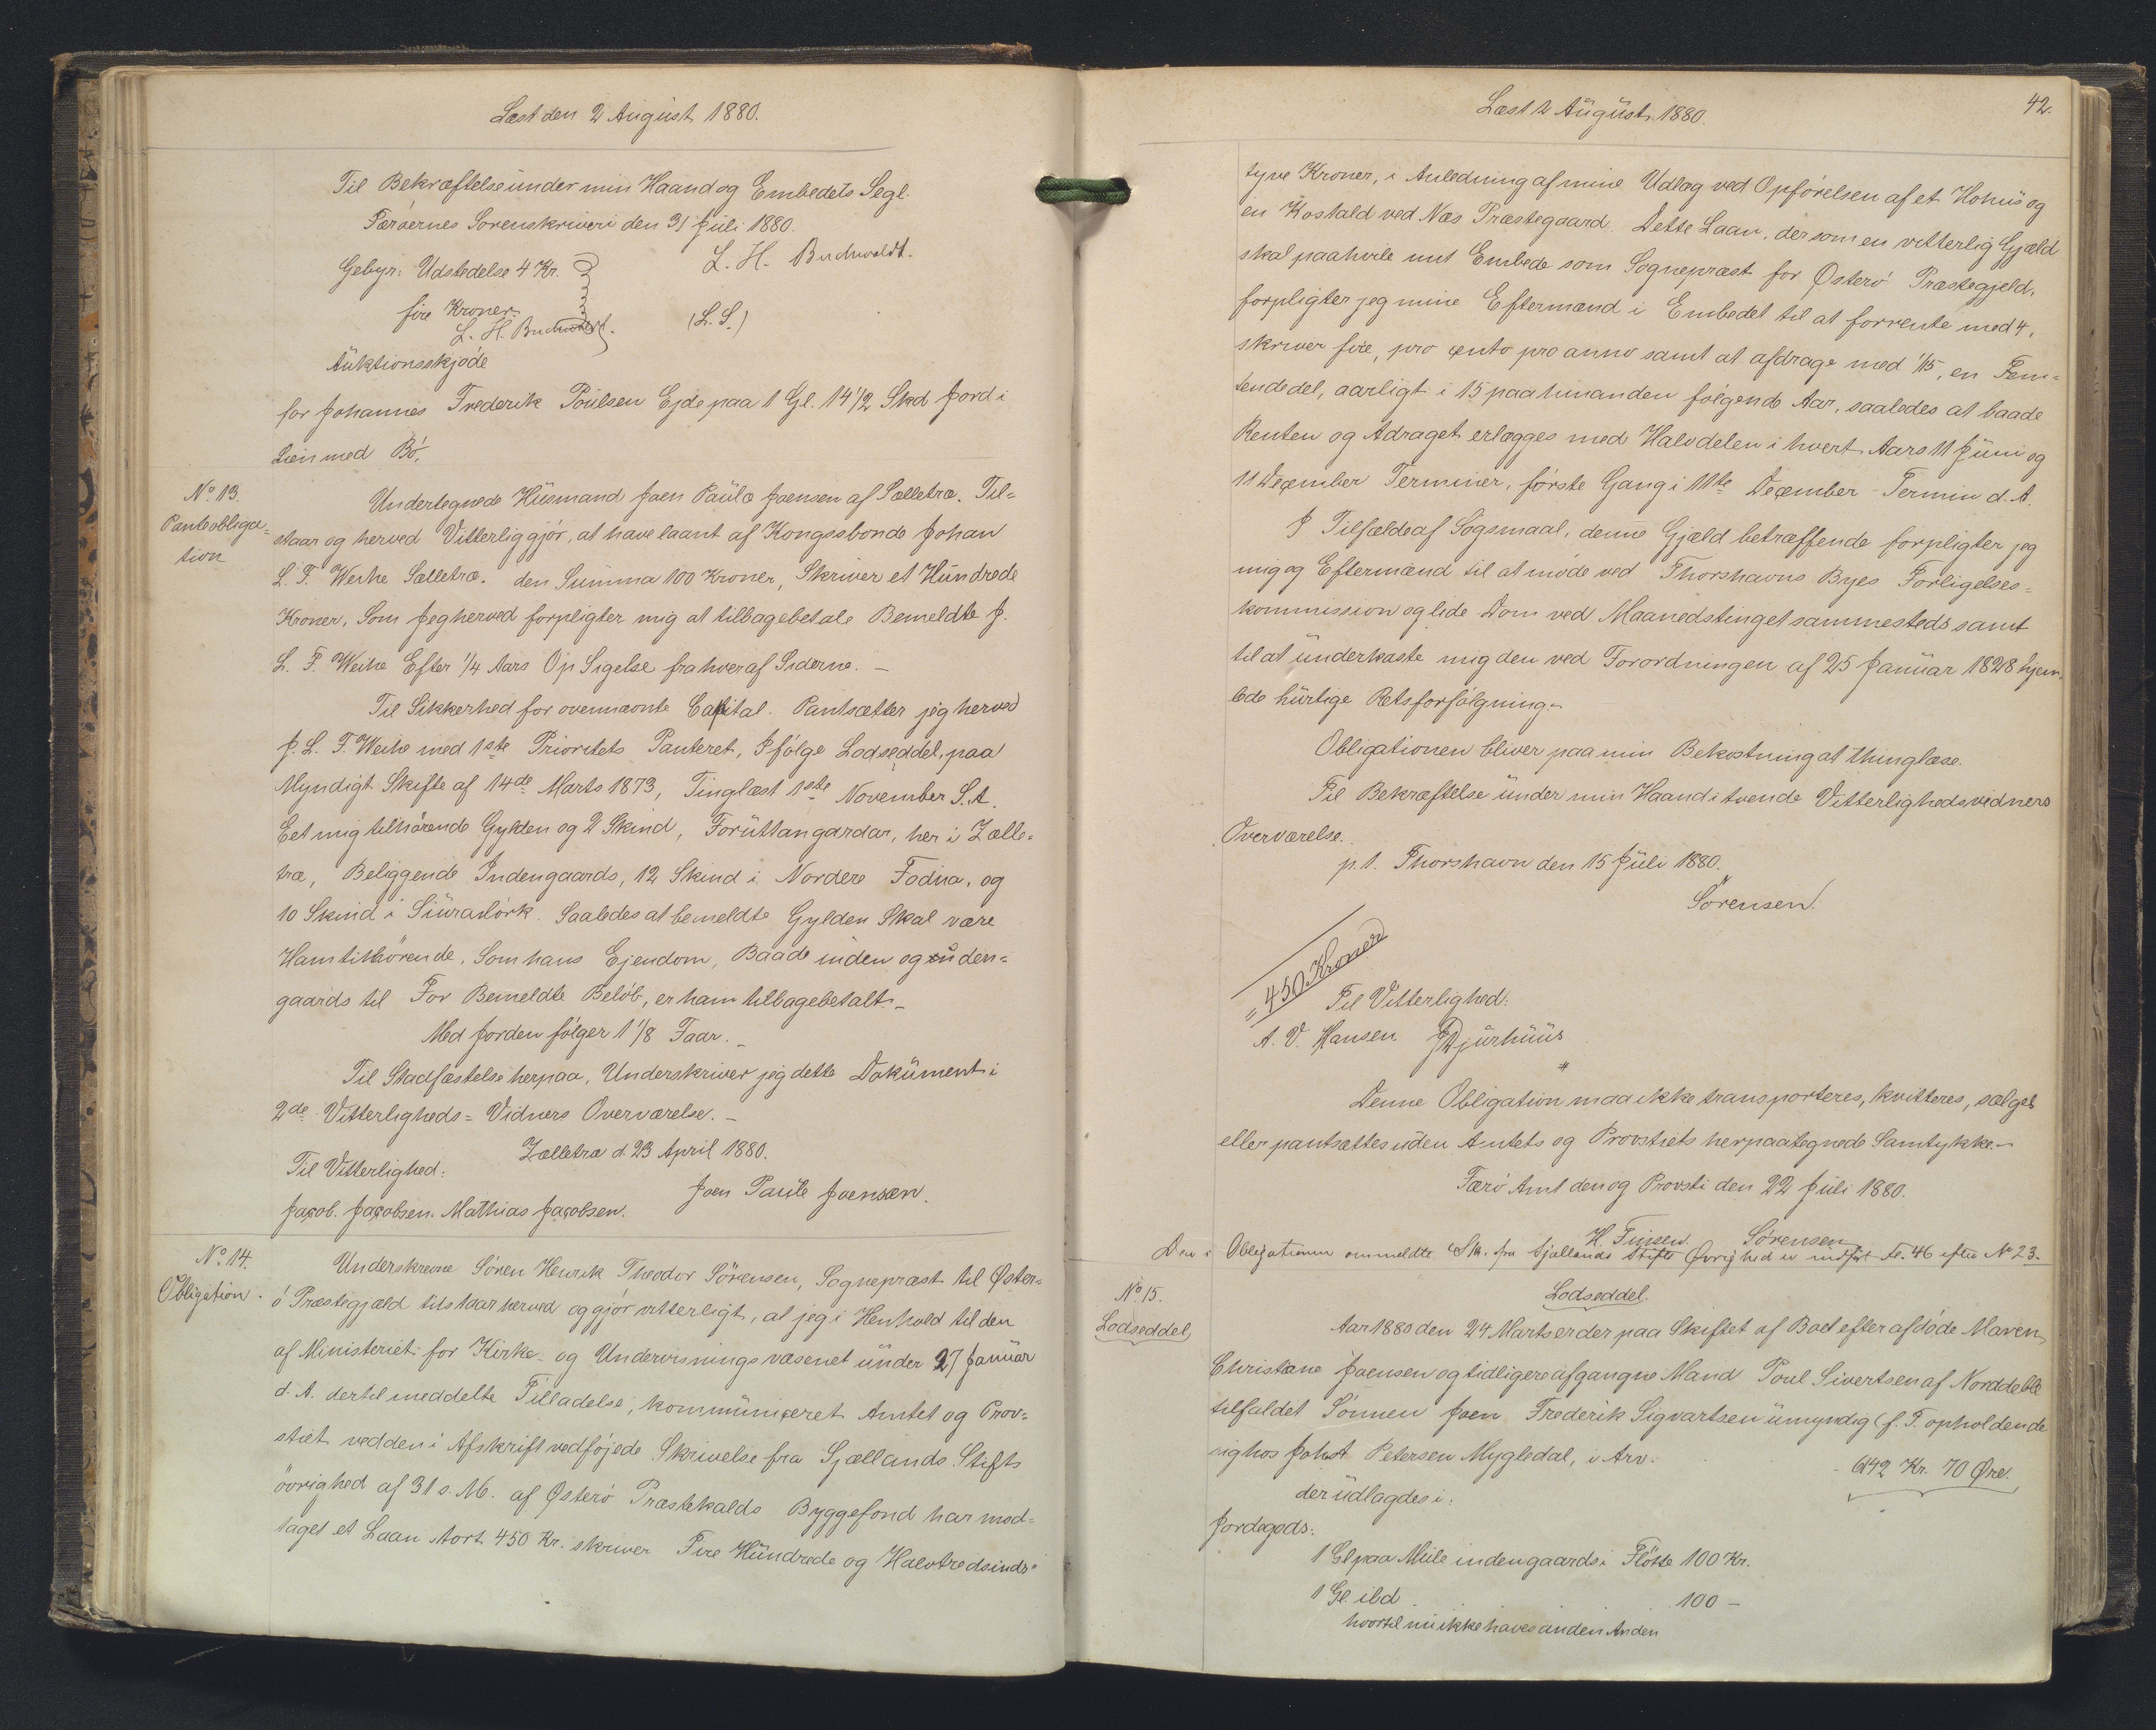 Læst den 2 August 1880.
Til Bekræftelse under min Haand og Embedets Segl.
Færøernes Sorenskriveri den 31 Juli 1880.
L. H. Buchwaldt.
Gebyr: Udstedelse 4 Kr.
fire Kroner.
L. H. Buchwaldt.
(L.S.)
Auktionsskjøde
for Johannes Frederik Poulsen Ejde paa 1 Gl. 14 1/2 Skd Jord i
Lien med Bø.
No. 13.
Panteobliga=
tion
Undertegnede Husmand Joen Paula Joensen af Sælletræ. Til=
staar og herved Vitterliggjør, at have laant af Kongsbonde Johan
L. F. Weihe Sælletræ. den Summa 100 Kroner, Skriver et Hundrede
Kroner, Som Jeg herved forpligter mig at tilbagebetale Bemeldte J.
L. F. Weihe Efter 1/4 Aars Op Sigelse fra hver af Siderne. —
Til Sikkerhed for ovennævnte Capital. Pantsætter jeg herved
J. L. F. Weihe med 1ste Prioritets Panteret, Ifølge Lodseddel, paa
Myndigt Skifte af 14de Marts 1873, Tinglæst 1ste November S. A.
Eet mig tilhørende Gylden og 2 Skind, Foruttangardar, her i Zælle=
træ, Beliggende Indengaards, 12 Skind i Nordere Fodna, og
10 Skind i Saaledes at bemeldte Gylden Skal være
Ham tilhørende, Som hans Ejendom, Baade inden og uden=
gaards til For Bemeldte Beløb, er ham tilbagebetalt. —
Med Jorden følger 1 1/8 Faar. —
Til Stadfæstelse herpaa, Underskriver jeg dette Dokument i
2de Vitterligheds=Vidners Overværelse. —
Zælletræ d. 23 April 1880.
Til Vitterlighed:
Joen Paule Joensen.
Jacob. Jacobsen. Mathias Jacobsen.
No. 14.
Obligation.
Underskrevne Søren Henrik Theodor Sørensen, Sognepræst til Øster=
ø Præstegjæld tilstaar herved og gjør vitterligt, at jeg i Henhold til den
af Ministeriet for Kirke- og Undervisningsvæsenet under 27 Januar
d. A. dertil meddelte Tilladelse, kommuniceret Amtet og Prov=
stiet ved den i Afskrift vedføjede Skrivelse fra Sjællands Stifts
øvrighed af 31 s. M. af Østerø Præstekalds Byggefond har mod=
taget et Laan stort 450 Kr. skriver Fire Hundrede og Halvtredsinds=
Læst 2 August 1880.
42.
tyve Kroner, i Anledning af mine Udlæg ved Opførelsen af et Hohus og
en Kostald ved Næs Præstegaard. Dette Laan, der som en vitterlig Gjæld
skal paahvile mit Embede som Sognepræst for Østerø Præstegjeld,
forpligter jeg mine Eftermænd i Embedet til at forrente med 4,
skriver fire, pro cento pro anno samt at afdrage med 1/15, en Fem=
tendedel, aarligt i 15 paa hinanden følgende Aar, saaledes at baade
Renten og Adraget erlægges med Halvdelen i hvert Aars 11 Juni og
11 December Terminer, første Gang i 11te December Termin d. A.
I Tilfælde af Søgsmaal, denne Gjæld betræffende forpligter jeg
mig og Eftermænd til at møde ved Thorshavns Byes Forligelses=
kommission og lide Dom ved Maanedstinget sammesteds samt
til at underkaste mig den ved Forordningen af 25 Januar 1828 hjem=
lede hurtige Retsforfølgning. —
Obligationen bliver paa min Bekostning at thinglæse.
Til Bekræftelse under min Haand i tvende Vitterlighedsvidners
Overværelse.
p. t. Thorshavn den 15 Juli 1880.
Sørensen.
"450 Kroner
Til Vitterlighed:
A. V. Hansen Djurhuus
Denne Obligation maa ikke transporteres, kvitteres, sælges
eller pantsættes uden Amtets og Provstiets herpaategnede Samtykke. —
Færø Amt den og Provsti den 22 Juli 1880.
H. Finsen Sørensen
Den i Obligationen ommeldte Sk. fra Sjællands Stifts Øvrighed er indført Fl. 46 efter No 23.
No. 15.
Lodseddel
Lodseddel.
Aar 1880 den 24 Marts er der paa Skiftet af Boet efter afdøde Maren
Christane Joensen og tidligere afgangne Mand Poul Sivertsen af Norddeble
tilfaldet Sønnen Joen Frederik Sigvartsen umyndig (f. T. opholdende
sig hos Petersen Mygledal, i Arv.
642 Kr. 70 Øre.
der udlagdes i:
Jordegods:
1 Gl paa Mule indengaards i Fløtte 100 Kr.
1 Gl. ibd 100 —
hvortil nu ikke haves anden Anden